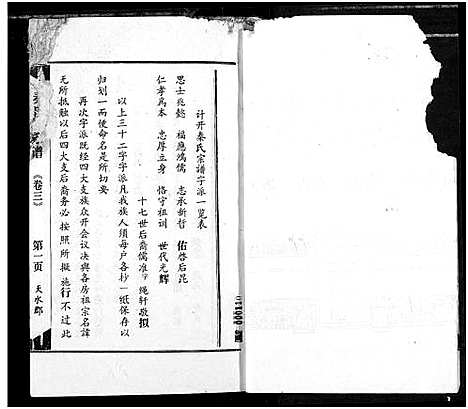 计开秦氏宗谱字派一览表
思士兆懿　福应鸿儒　志承新哲　佑启后昆
仁孝为本　忠厚立身　恪守祖训　世代光辉
十七世后裔儒准字绳轩敬拟
以上三十二字字派凡我族人须每户各抄一纸保存以
归划一而使命名是所切要
再次字派既经四大支族众开会议决与各房祖宗名讳
无所抵触以后四大支后裔务必按照所拟施行不过此
谱
《卷三》
第一页
天水郡